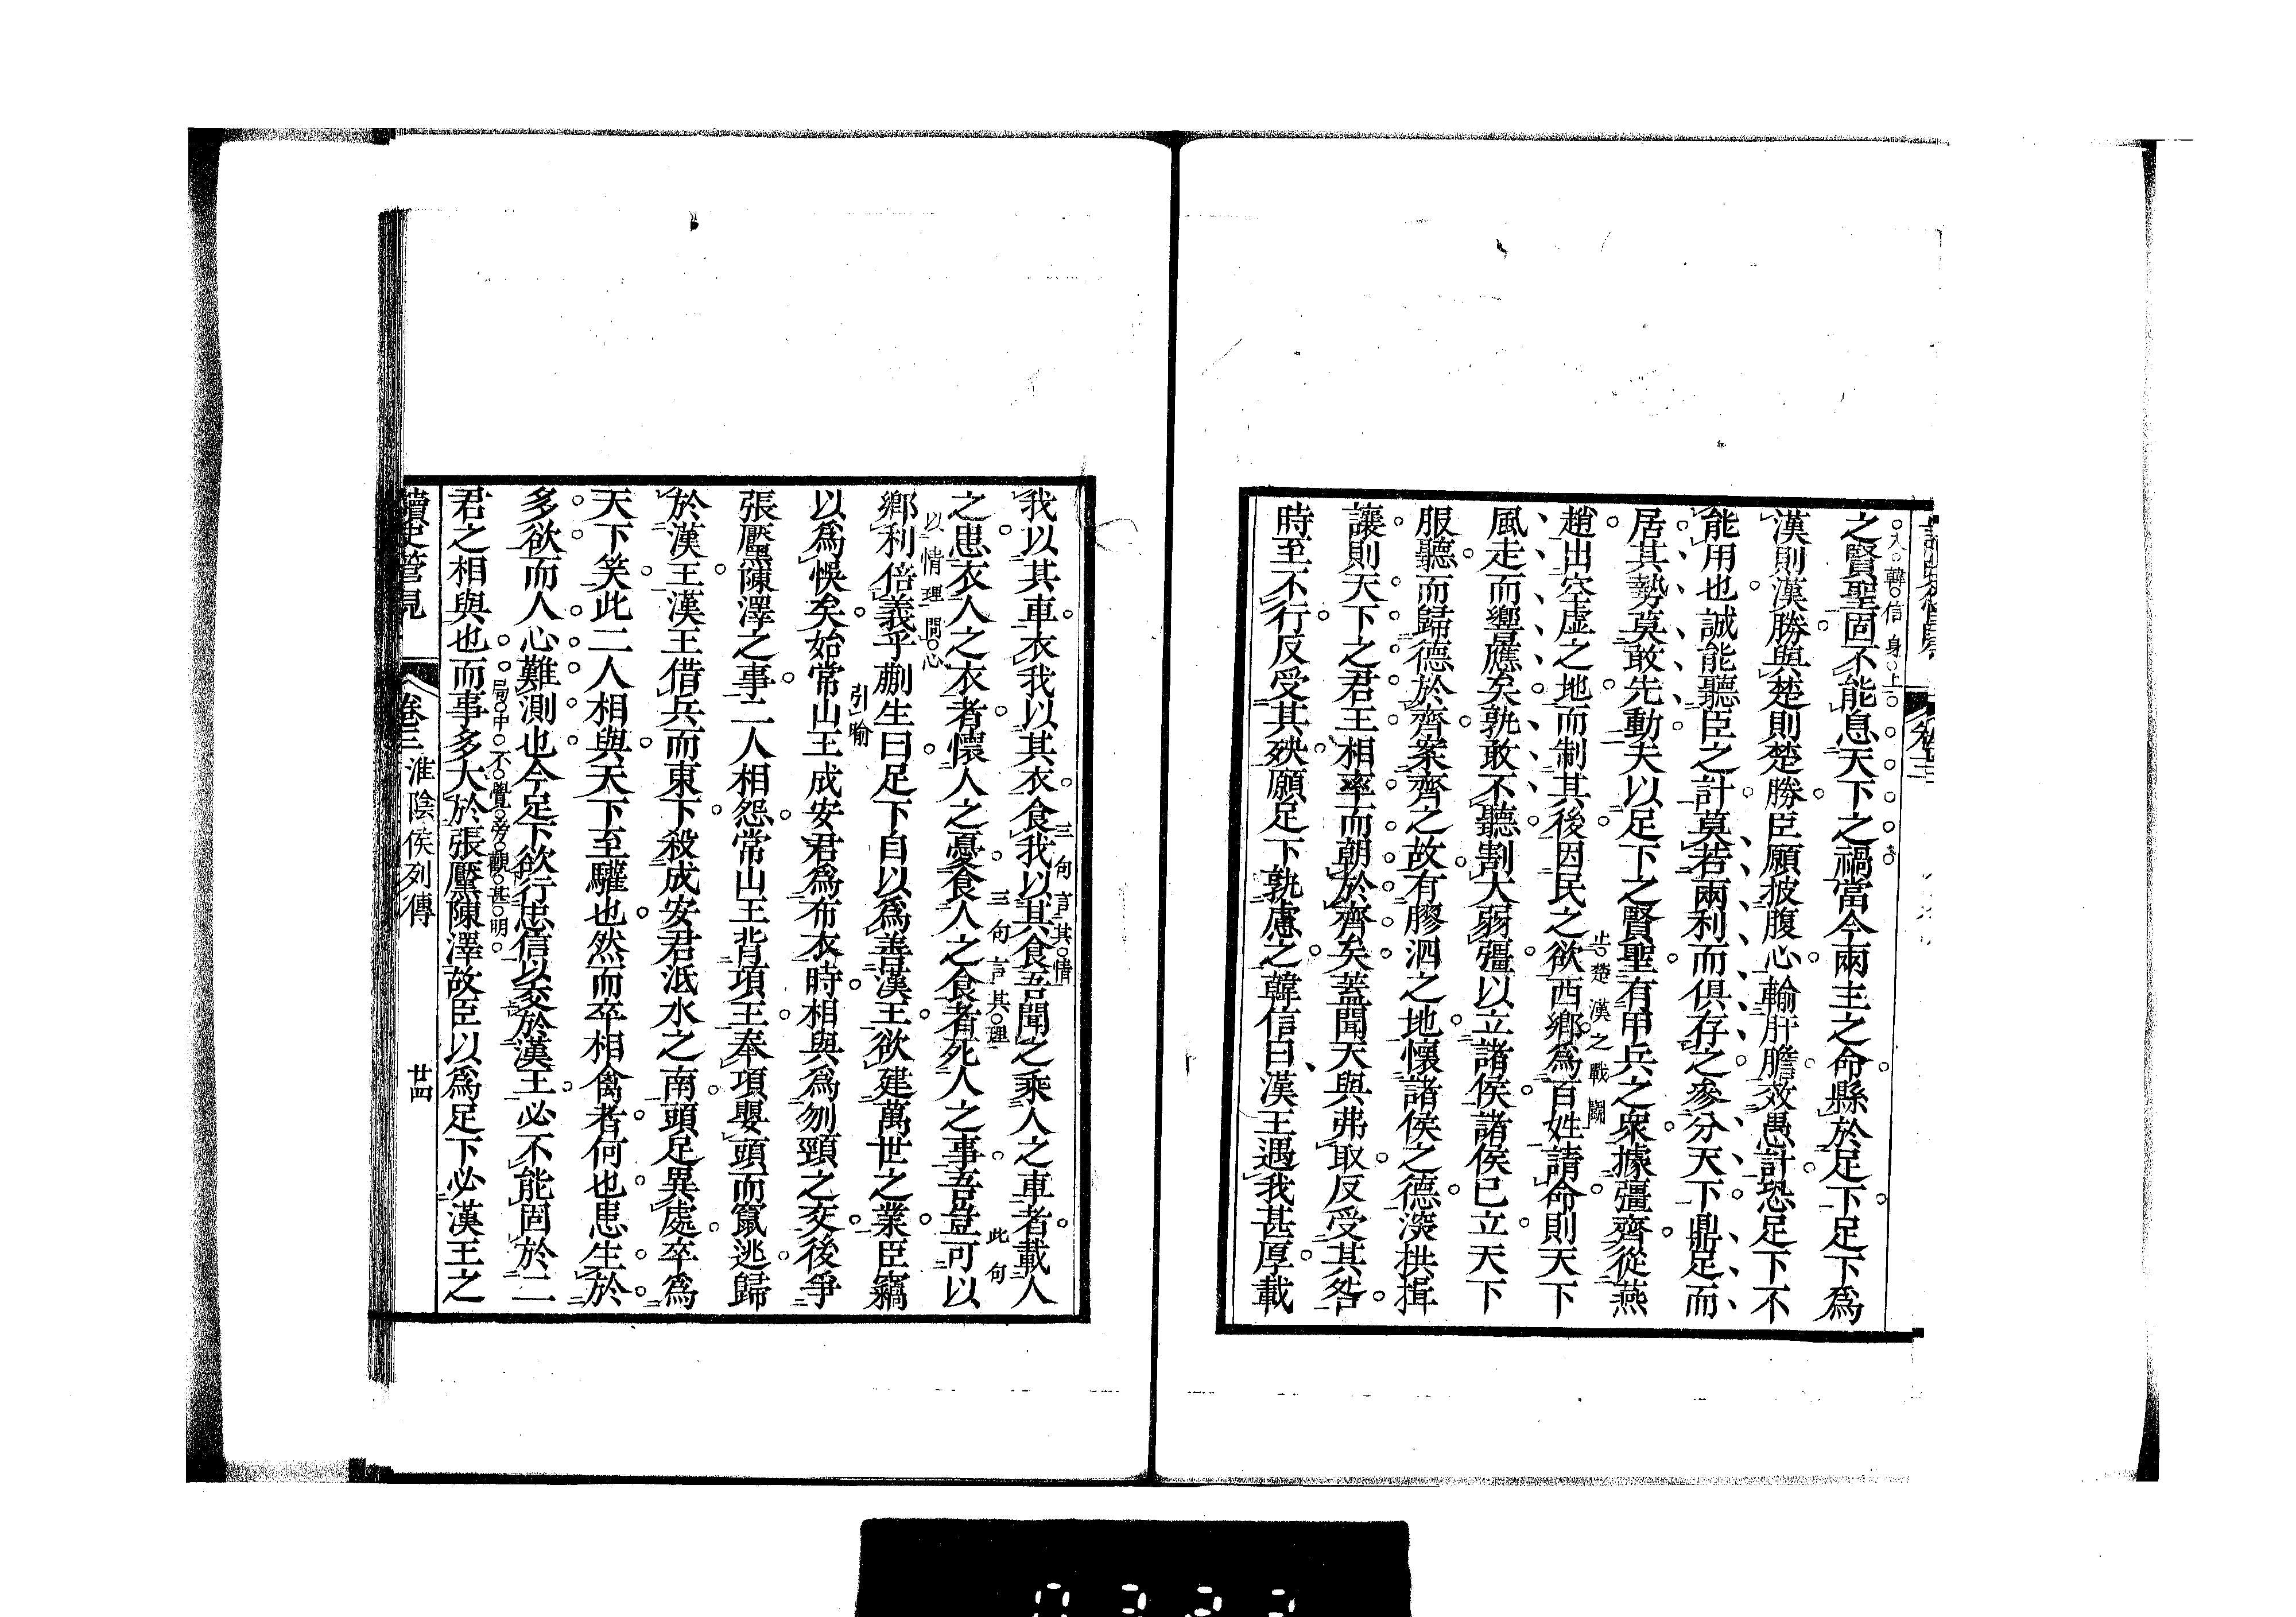 之賢聖固不能息天下之禍當今兩主之命縣於足下足下爲
漢則漢勝與楚則楚勝臣願披腹心輸肝膽效愚計恐足下不
能用也誠能聽臣之計莫若兩利而俱存之參分天下鼎足而
居其勢莫敢先動夫以足下之賢聖有甲兵之衆據彊齊從燕
止楚漢之戰鬪
趙出空虛之地而制其後因民之欲西鄉爲百姓請命則天下
風走而響應矣孰敢不聽割大弱彊以立諸侯諸侯已立天下
服聽而歸德於齊案齊之故有膠泗之地懷諸侯之德深拱揖
讓則天下之君王相率而朝於齊矣蓋聞天與弗取反受其咎
時至不行反受其殃願足下孰慮之韓信曰漢王遇我甚厚載
三句言其情
我以其車衣我以其衣食我以其食吾聞之乘人之車者載人
三句言其理 此句
之患衣人之衣者懷人之憂食人之食者死人之事吾豈可以
以情理間心
鄉利倍義乎蒯生曰足下自以爲善漢王欲建萬世之業臣竊
引喻
以爲悞矣始常山王成安君爲布衣時相與爲刎頸之交後爭
張黶陳澤之事二人相怨常山王背項王奉項嬰頭而竄逃歸
於漢王漢王借兵而東下殺成安君泜水之南頭足異處卒爲
天下笑此二人相與天下至驩也然而卒相禽者何也患生於
多欲而人心難測也今足下欲行忠信以交於漢王必不能固於二
局中不覺旁觀甚明
君之相與也而事多大於張黶陳澤故臣以爲足下必漢王之
讀史管見 卷三 淮陰侯列傳 廿四